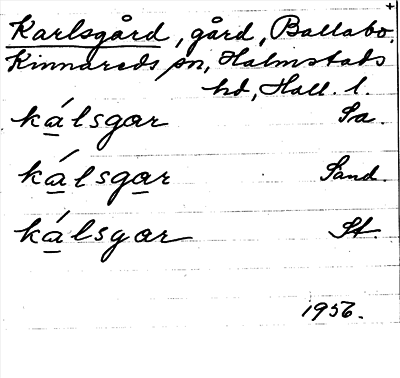 +
Karlsgård, gård, Ballabo,
Kinnareds sn, Halmstads
hd, Hall. l.
kálsgar Sa.
kálsgar Sand.
kálsgar St.
1956.